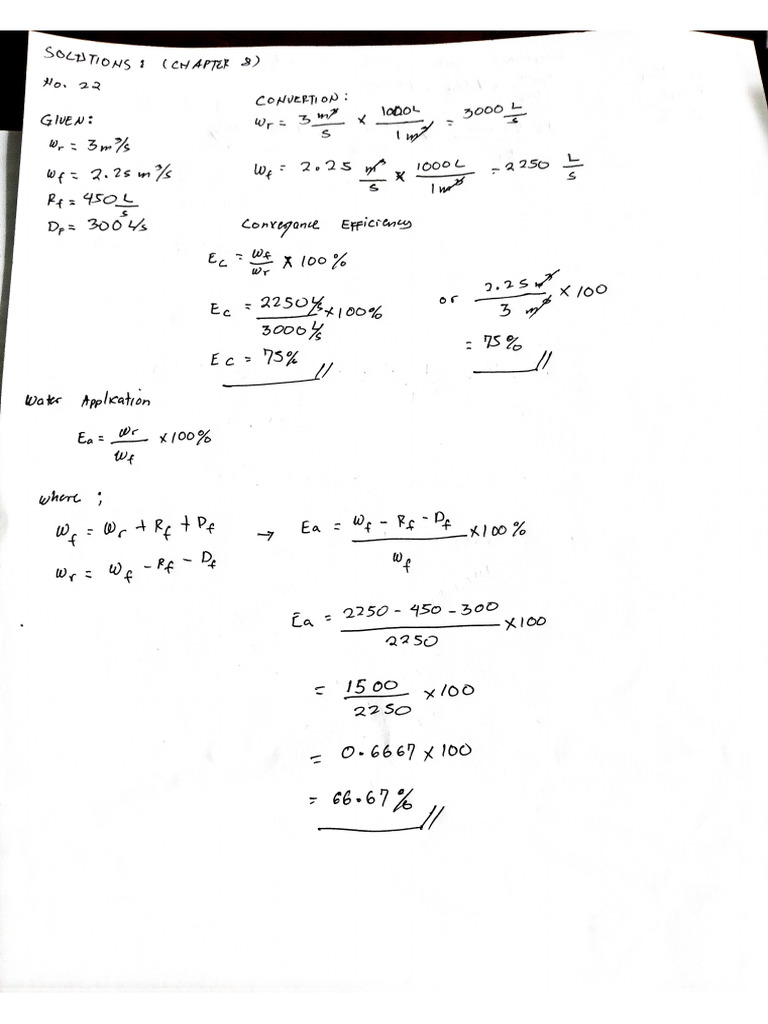 SOLUTIONS : (CHAPTER 8)
No. 22
GIVEN:
Wr = 3 m³/s
Wf = 2.25 m³/s
Rf = 450 L/s
DF = 300 L/s
CONVERTION:
Wr = 3 m³/s × 1000L/1m³ = 3000 L/s
Wf = 2.25 m³/s × 1000L/1m³ = 2250 L/s
Conveyance Efficiency
Ec = Wf/Wr × 100%
Ec = 2250 L/s / 3000 L/s × 100%
Ec = 75% //
or 2.25 m³ / 3 m³ × 100
= 75% //
Water Application
Ea = Wr/Wf × 100%
where ;
Wf = Wr + Rf + Df
Wr = Wf - Rf - Df
→ Ea = Wf - Rf - Df / Wf × 100%
Ea = 2250 - 450 - 300 / 2250 × 100
= 1500/2250 × 100
= 0.6667 × 100
= 66.67% //